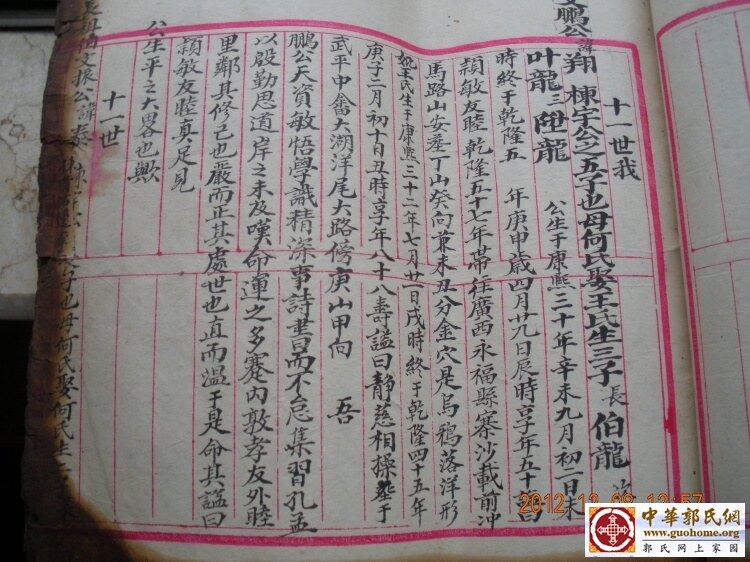 十一世我
文鵬公諱翔 棟宇公之五子也母何氏娶王氏生三子長伯龍次
叶龍三陞龍 公生于康熙三十年辛未九月初二日未
時終于乾隆五 年庚申歲四月廿九日辰時享年五十謚曰
穎敏友睦乾隆五十七年帶往廣西永福縣寨沙載前冲
馬路山安塟丁山癸向兼未丑分金穴是烏鴉落洋形
妣王氏生于康熙三十二年七月廿一日戌時終于乾隆四十五年
庚子二月初十日丑時享年八十八壽謚曰靜慈相操塟于
武平中畬大湖洋尾大路傍庚山甲向 吾
鵬公天資敏悟學識精深事詩書而不怠集習孔孟
以殷勤思道岸之未及嘆命運之多蹇內敦孝友外睦
里鄰其修己也嚴而正其處世也直而溫于是命其謚曰
穎敏友睦真足見
公生平之大畧也歟
十一世
伯文振公諱泰 子也母何氏娶何氏生二
2012.12.09 12:57
中華郭氏網
www.guohome.org
郭氏网上家园